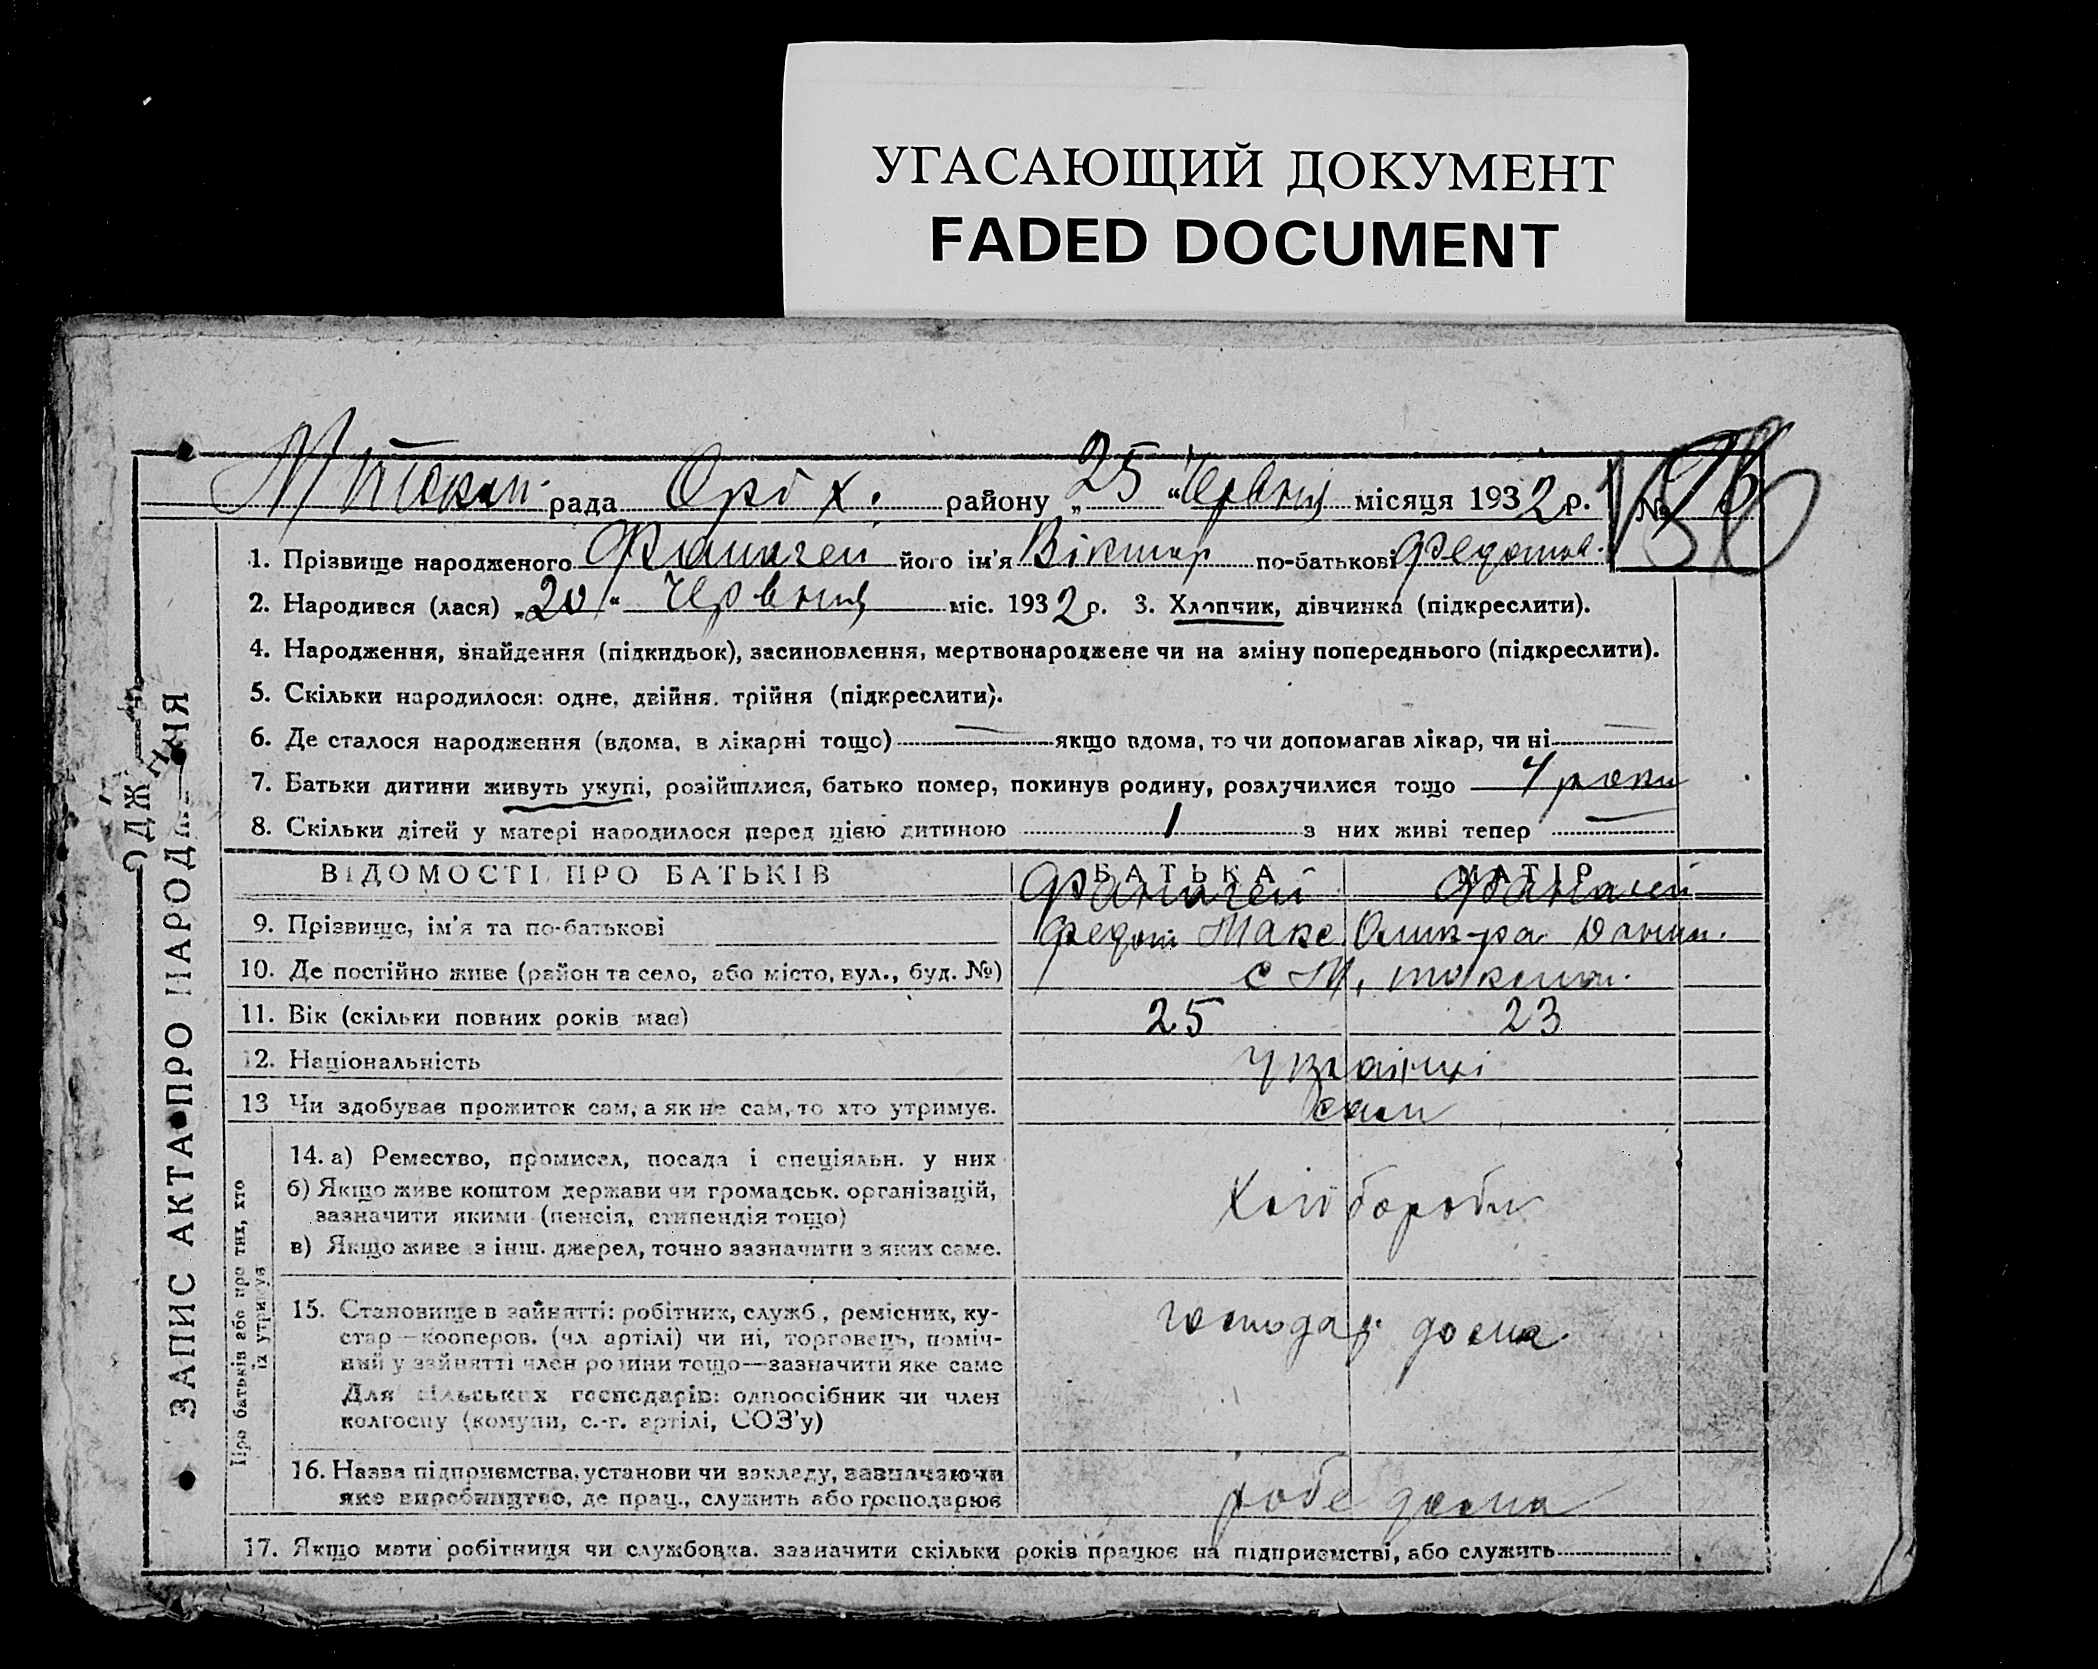 УГАСАЮЩИЙ ДОКУМЕНТ
FADED DOCUMENT
рада району „25“ Червня місяця 1932 р. №
1. Прізвище народженого його ім'я Віктор по-батькові Федотов.
2. Народився (лася) „20“ Червня міс. 1932 р. 3. Хлопчик, дівчинка (підкреслити).
4. Народження, знайдення (підкидьок), засиновлення, мертвонароджене чи на зміну попереднього (підкреслити).
5. Скільки народилося: одне, двійня, трійня (підкреслити).
6. Де сталося народження (вдома, в лікарні тощо) — якщо вдома, то чи допомагав лікар, чи ні —
7. Батьки дитини живуть укупі, розійшлися, батько помер, покинув родину, розлучилися тощо 4 роки
8. Скільки дітей у матері народилося перед цією дитиною 1 з них живі тепер —
ЗАПИС АКТА ПРО НАРОДЖЕННЯ
ВІДОМОСТІ ПРО БАТЬКІВ БАТЬКА МАТІР
9. Прізвище, ім'я та по-батькові Федот Макс
10. Де постійно живе (район та село, або місто, вул., буд. №)
11. Вік (скільки повних років має) 25 23
12. Національність Українці
13 Чи здобуває прожиток сам, а як не сам, то хто утримує. сами
Про батьків або про тих, хто
їх утримує
14. а) Ремество, промисел, посада і спеціяльн. у них
б) Якщо живе коштом держави чи громадськ. організацій,
зазначити якими (пенсія, стипендія тощо)
в) Якщо живе з інш. джерел, точно зазначити з яких саме.
Хлібороби
15. Становище в зайнятті: робітник, служб., ремісник, ку-
стар—кооперов. (чл. артілі) чи ні, торговець, поміч-
ний у зайнятті член родини тощо—зазначити яке саме
Для сільських господарів: одноосібник чи член
колгоспу (комуни, с.-г. артілі, СОЗ'у)
господар. дома.
16. Назва підприємства, установи чи закладу, зазначаючи
яке виробництво, де прац., служить або господарює
робе дома
17. Якщо мати робітниця чи службовка, зазначити скільки років працює на підприємстві, або служить